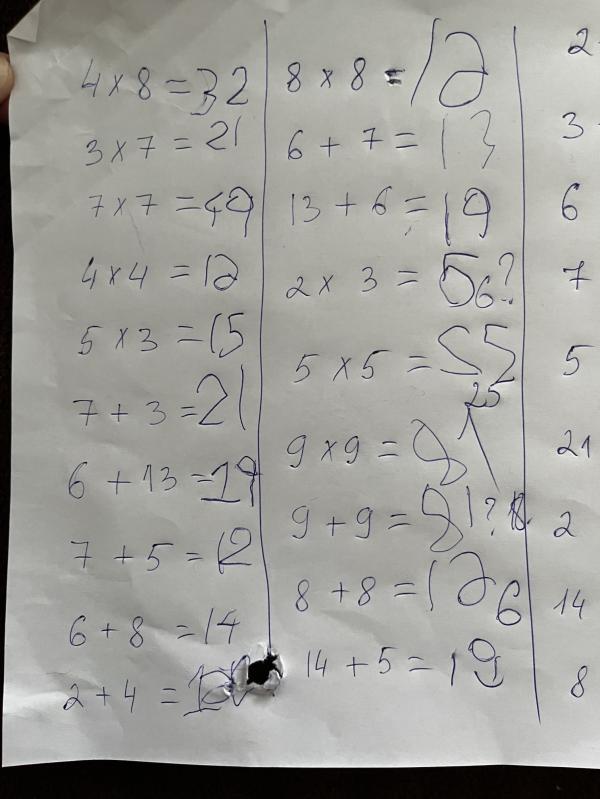 4 x 8 = 32
3 x 7 = 21
7 x 7 = 49
4 x 4 = 12
5 x 3 = 15
7 + 3 = 21
6 + 13 = 19
7 + 5 = 12
6 + 8 = 14
2 + 4 =
8 x 8 = 12
6 + 7 = 13
13 + 6 = 19
2 x 3 = 5 6?
5 x 5 = 55
25
9 x 9 = 81
9 + 9 = 81? 18
8 + 8 = 12 6
14 + 5 = 19
2
3
6
7
5
21
2
14
8